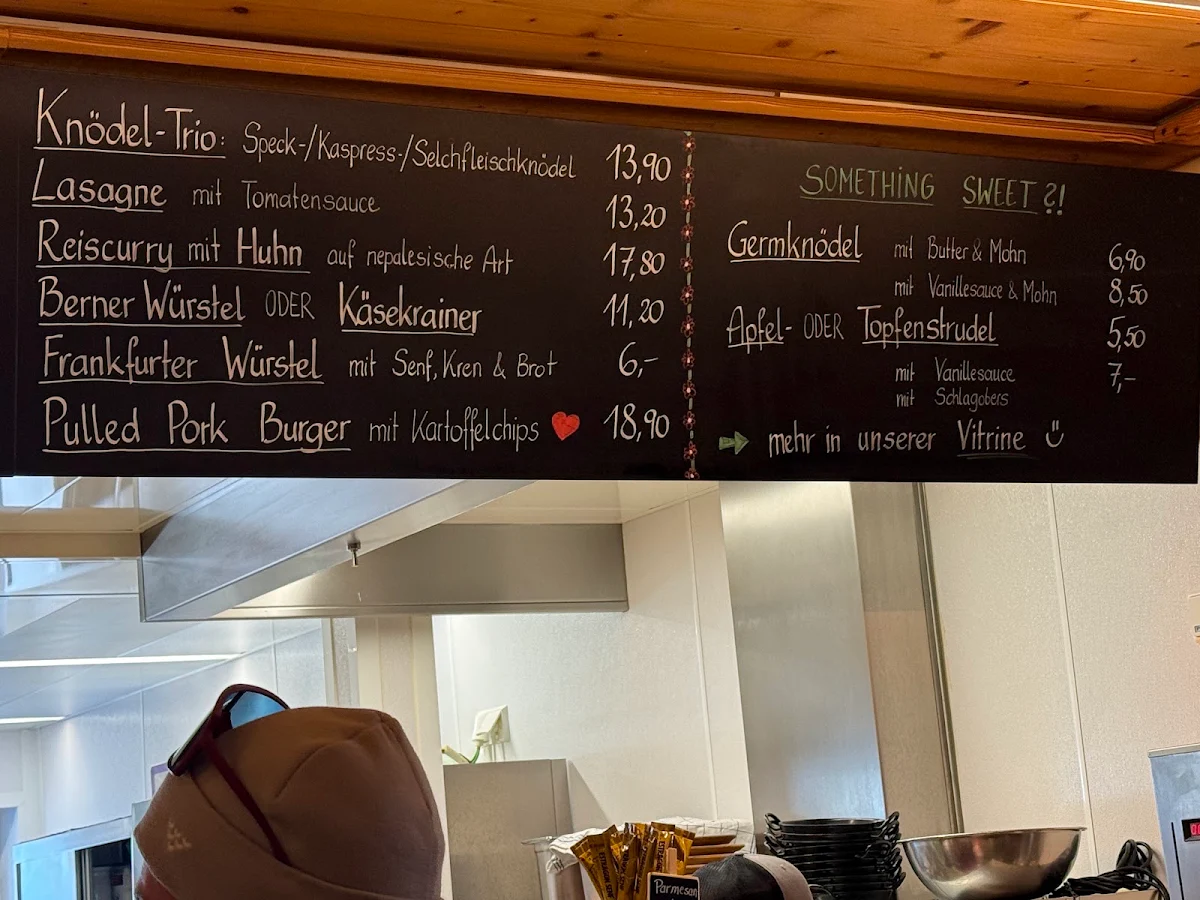 Knödel-Trio: Speck-/Kaspress-/Selchfleischknödel 13,90
Lasagne mit Tomatensauce 13,20
Reiscurry mit Huhn auf nepalesische Art 17,80
Berner Würstel ODER Käsekrainer 11,20
Frankfurter Würstel mit Senf, Kren & Brot 6,-
Pulled Pork Burger mit Kartoffelchips 18,90
SOMETHING SWEET ?!
Germknödel mit Butter & Mohn 6,90
mit Vanillesauce & Mohn 8,50
Apfel- ODER Topfenstrudel 5,50
mit Vanillesauce 7,-
mit Schlagobers
mehr in unserer Vitrine
Parmesan